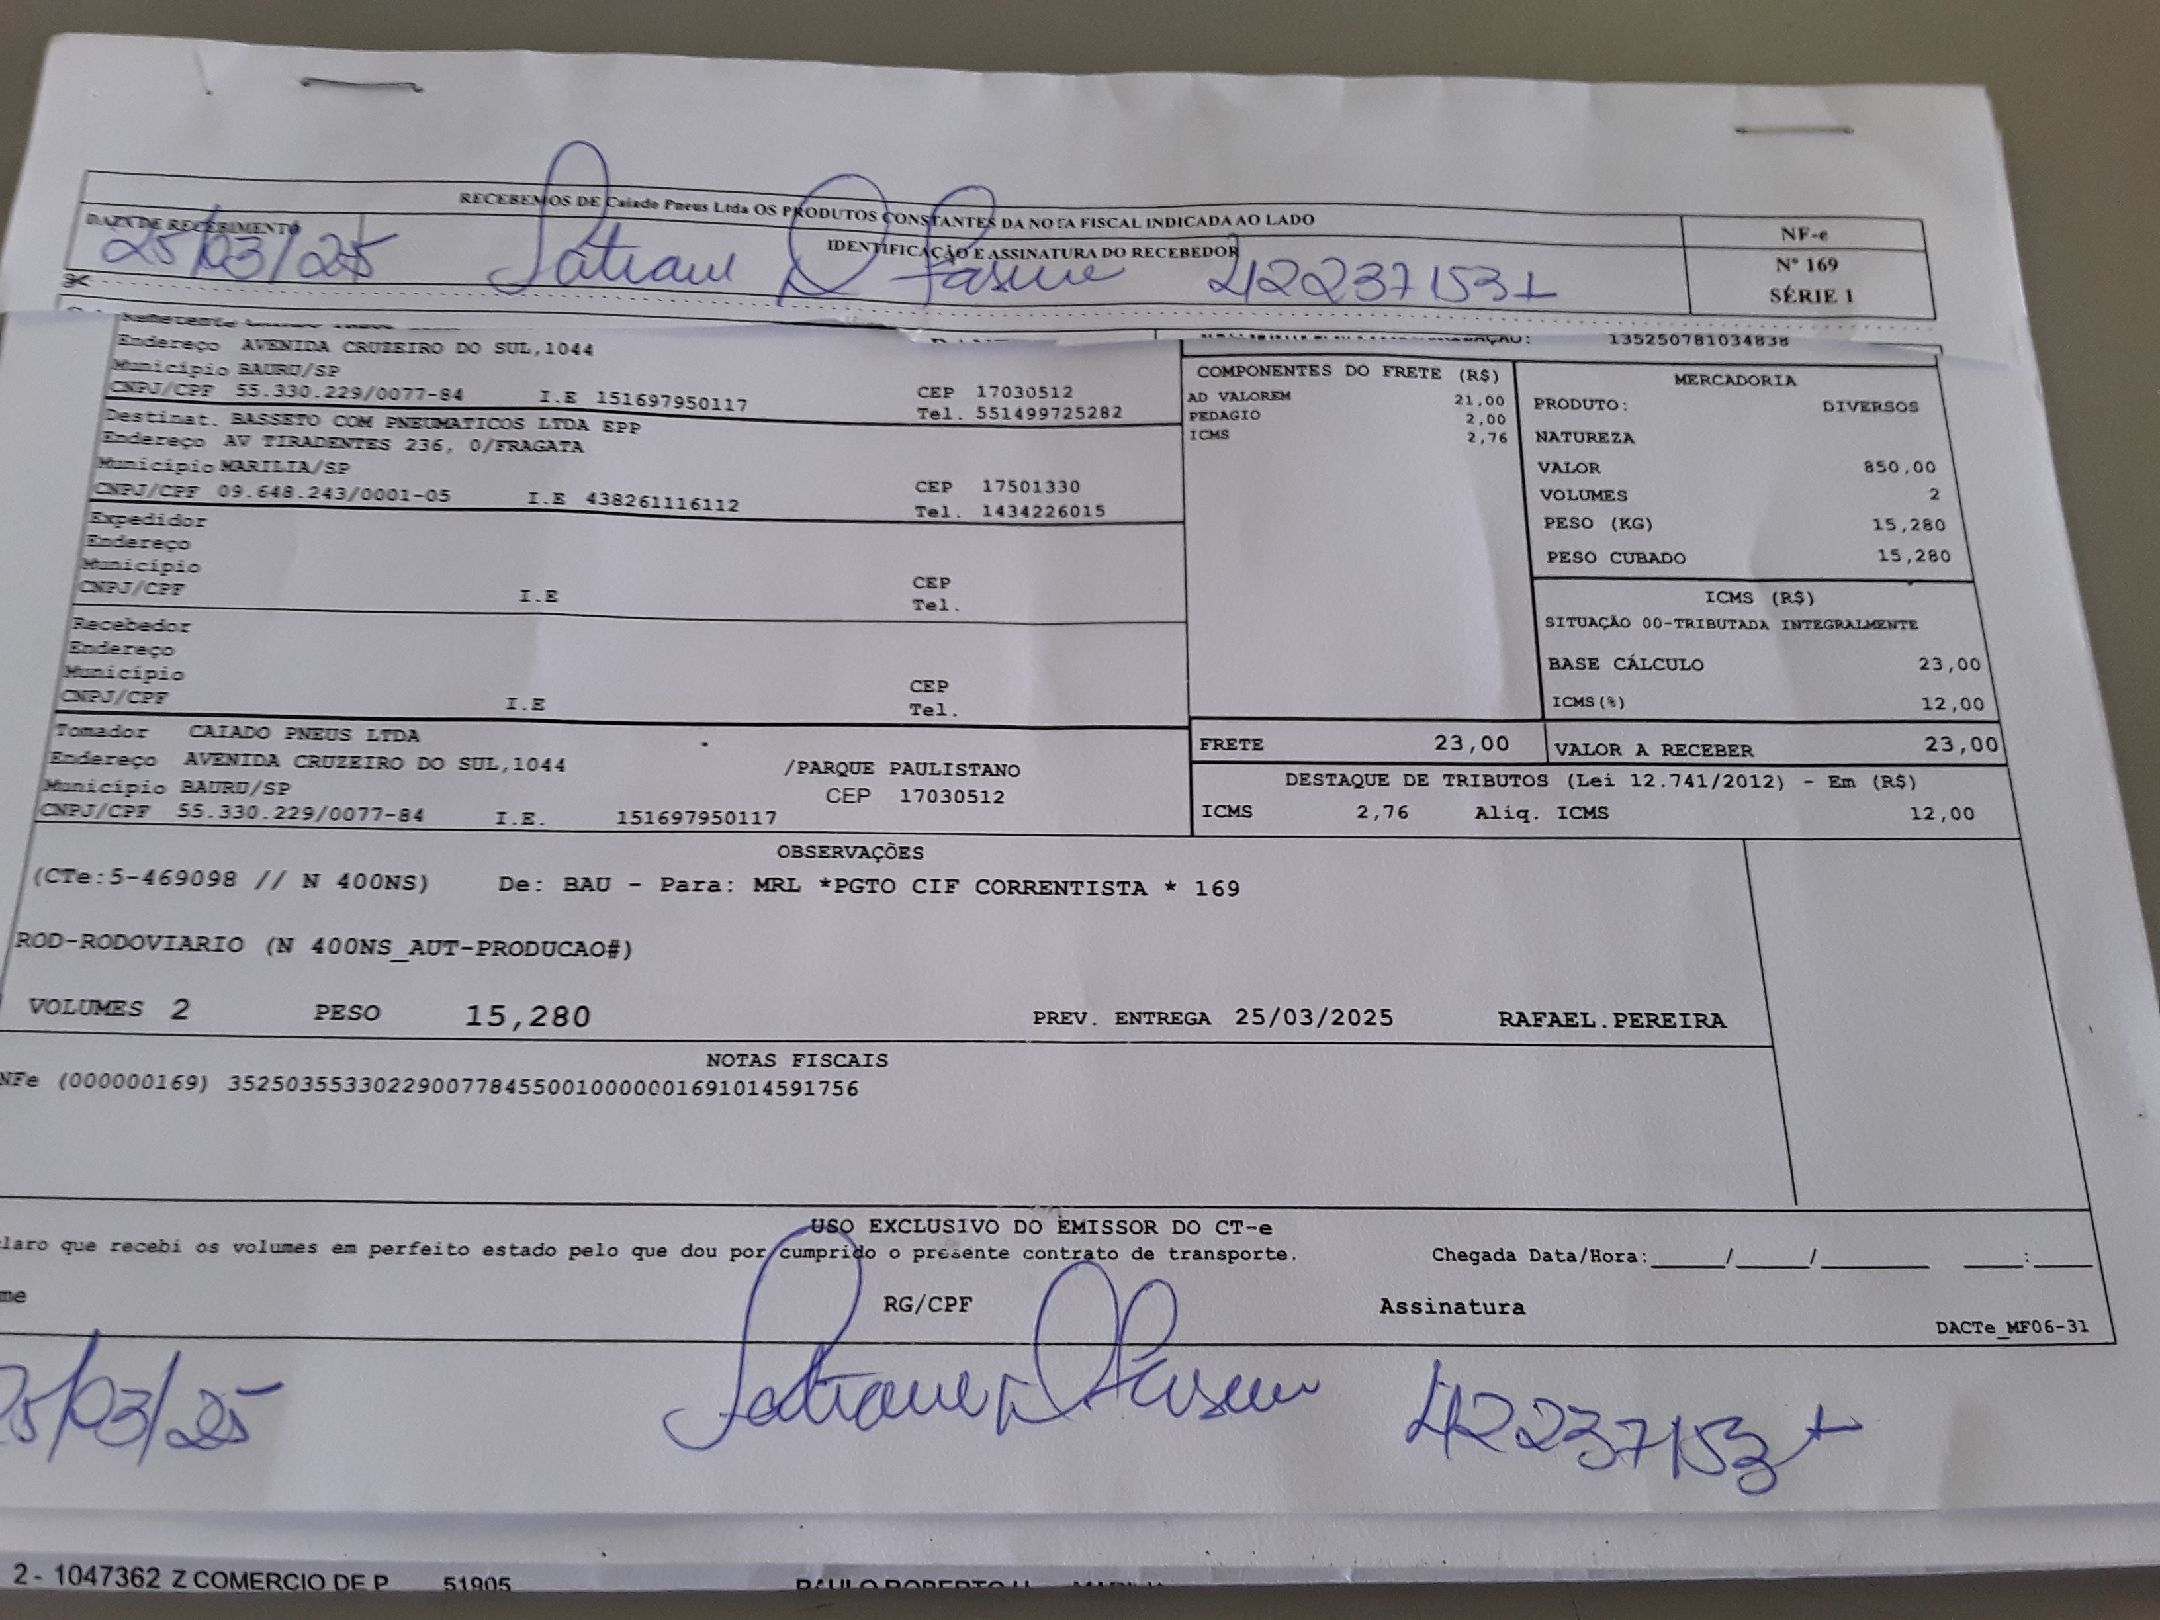 RECEBEMOS DE Caiado Pneus Ltda OS PRODUTOS CONSTANTES DA NOTA FISCAL INDICADA AO LADO
DATA DE RECEBIMENTO
IDENTIFICAÇÃO E ASSINATURA DO RECEBEDOR
25/03/25
NF-e
Nº 169
SÉRIE 1
135250781034838
Endereço AVENIDA CRUZEIRO DO SUL,1044
Município BAURU/SP CEP 17030512
CNPJ/CPF 55.330.229/0077-84 I.E 151697950117 Tel. 551499725282
Destinat. BASSETO COM PNEUMATICOS LTDA EPP
Endereço AV TIRADENTES 236, 0/FRAGATA
Município MARILIA/SP CEP 17501330
CNPJ/CPF 09.648.243/0001-05 I.E 438261116112 Tel. 1434226015
Expedidor
Endereço
Município CEP
CNPJ/CPF I.E Tel.
Recebedor
Endereço
Município CEP
CNPJ/CPF I.E Tel.
Tomador CAIADO PNEUS LTDA
Endereço AVENIDA CRUZEIRO DO SUL,1044 /PARQUE PAULISTANO
Município BAURU/SP CEP 17030512
CNPJ/CPF 55.330.229/0077-84 I.E. 151697950117
COMPONENTES DO FRETE (R$)
AD VALOREM 21,00
PEDAGIO 2,00
ICMS 2,76
MERCADORIA
PRODUTO: DIVERSOS
NATUREZA
VALOR 850,00
VOLUMES 2
PESO (KG) 15,280
PESO CUBADO 15,280
ICMS (R$)
SITUAÇÃO 00-TRIBUTADA INTEGRALMENTE
BASE CÁLCULO 23,00
ICMS(%) 12,00
FRETE 23,00 VALOR A RECEBER 23,00
DESTAQUE DE TRIBUTOS (Lei 12.741/2012) - Em (R$)
ICMS 2,76 Aliq. ICMS 12,00
OBSERVAÇÕES
(CTe:5-469098 // N 400NS) De: BAU - Para: MRL *PGTO CIF CORRENTISTA * 169
ROD-RODOVIARIO (N 400NS_AUT-PRODUCAO#)
VOLUMES 2 PESO 15,280 PREV. ENTREGA 25/03/2025 RAFAEL.PEREIRA
NOTAS FISCAIS
NFe (000000169) 35250355330229007784550010000001691014591756
USO EXCLUSIVO DO EMISSOR DO CT-e
laro que recebi os volumes em perfeito estado pelo que dou por cumprido o presente contrato de transporte. Chegada Data/Hora:_____/_____/________ ____:____
me RG/CPF Assinatura
DACTe_MF06-31
25/03/25
2 - 1047362 Z COMERCIO DE P 51905 PAULO ROBERTO